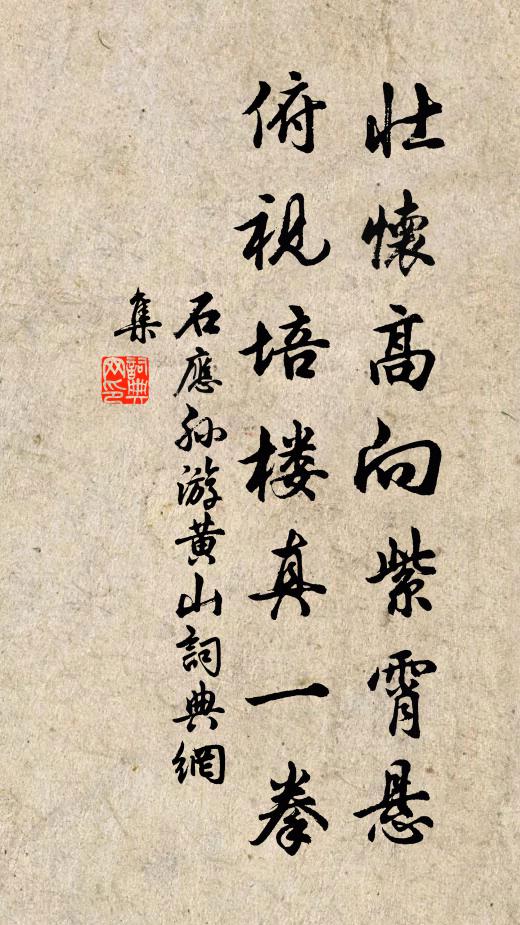 壮懷高向紫霄懸
俯視培楼真一拳
石應孫游黄山詞典網
集
詞典
网印